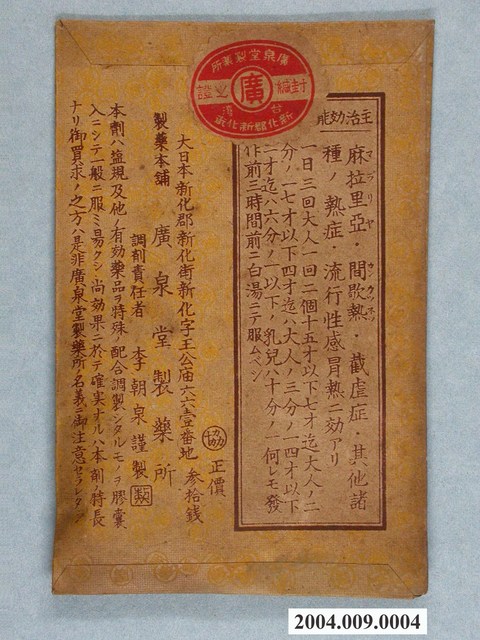 廣泉堂製藥所
封緘之證
廣
台灣
新化郡新化街
主治效能
麻拉里亞・間歇熱・截虐症・其他諸
マラリヤ
種ノ熱症・流行性感冒熱ニ効アリ
一日三回大人一回二個十五才以下七才迄大人ノ二
分ノ一七才以下四才迄ハ大人ノ三分ノ一四才以下
二才迄ハ六分ノ一以下ノ乳兒ハ十分ノ一何レモ發
作前三時間前ニ白湯ニテ服ムベシ
協 正價 參拾錢
大日本新化郡新化街新化字王公庙六六壹番地
製藥本舖 廣泉堂製藥所
調劑責任者 李朝泉謹製
本劑ハ塩規及他ノ有効藥品ヲ特殊ノ配合調製シタルモノヲ膠囊
入ニシテ一般ニ服ミ易クシ尚効果ニ於テ確実ナルハ本劑ノ特長
ナリ御買求ノ之方ハ是非廣泉堂製藥所ノ名義ニ御注意セラレタシ
2004.009.0004